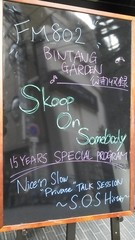 FM802
"BINTANG
GARDEN"
Skoop
On
Somebody
15 YEARS SPECIAL PROGRAM
Nice'n Slow
"Private" TALK SESSION
~SOS